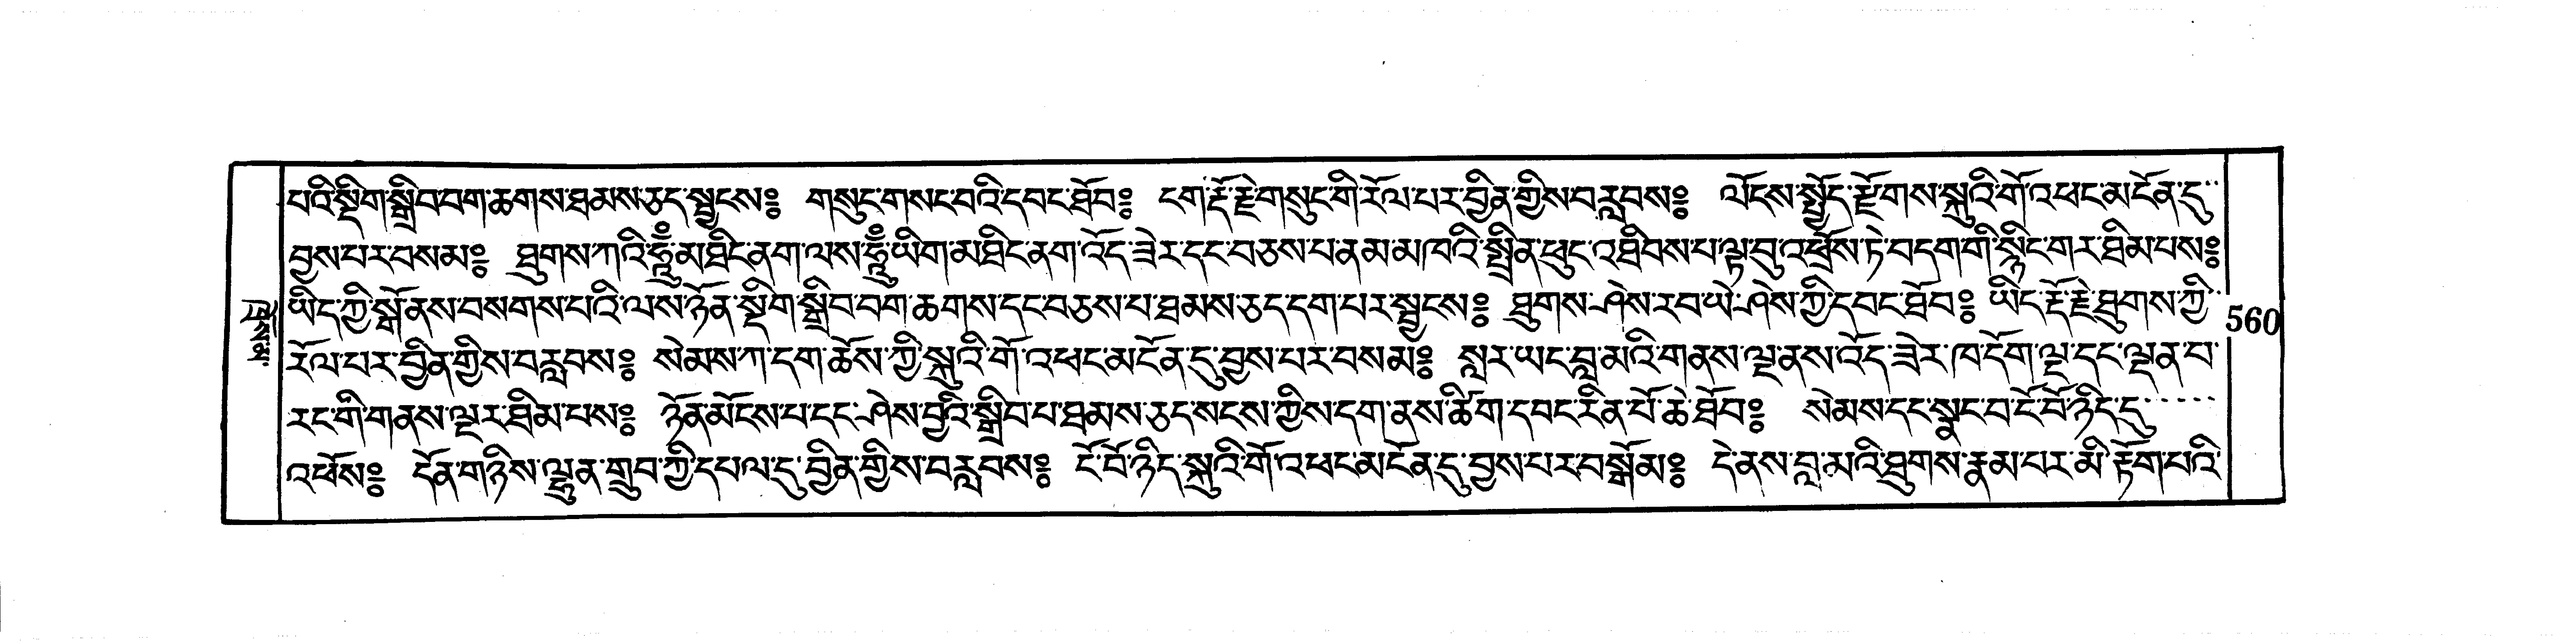 པའི་སྡིག་སྒྲིབ་བག་ཆགས་ཐམས་ཅད་སྦྱངས༔ གསུང་གསང་བའི་དབང་ཐོབ༔ ངག་རྡོ་རྗེ་གསུང་གི་རོལ་པར་བྱིན་གྱིས་བརླབས༔ ལོངས་སྤྱོད་རྫོགས་སྐུའི་གོ་འཕང་མངོན་དུ་
བྱས་པར་བསམ༔ ཐུགས་ཀའི་ཧཱུྃ་མཐིང་ནག་ལས་ཧཱུྃ་ཡིག་མཐིང་ནག་འོད་ཟེར་དང་བཅས་པ་ནམ་མཁའི་སྤྲིན་ཕུང་འཐིབས་པ་ལྟ་བུ་འཕྲོས་ཏེ་བདག་གི་སྙིང་གར་ཐིམ་པས༔
ཡིད་ཀྱི་སྒོ་ནས་བསགས་པའི་ལས་ཉོན་སྡིག་སྒྲིབ་བག་ཆགས་དང་བཅས་པ་ཐམས་ཅད་དག་པར་སྦྱངས༔ ཐུགས་ཤེས་རབ་ཡེ་ཤེས་ཀྱི་དབང་ཐོབ༔ ཡིད་རྡོ་རྗེ་ཐུགས་ཀྱི་
རོལ་པར་བྱིན་གྱིས་བརླབས༔ སེམས་ཀ་དག་ཆོས་ཀྱི་སྐུའི་གོ་འཕང་མངོན་དུ་བྱས་པར་བསམ༔ སླར་ཡང་བླ་མའི་གནས་ལྔ་ནས་འོད་ཟེར་ཁ་དོག་ལྔ་དང་ལྡན་པ་
རང་གི་གནས་ལྔར་ཐིམ་པས༔ ཉོན་མོངས་པ་དང་ཤེས་བྱའི་སྒྲིབ་པ་ཐམས་ཅད་སངས་ཀྱིས་དག་ནས་ཚིག་དབང་རིན་པོ་ཆེ་ཐོབ༔ སེམས་དང་སྣང་བ་ངོ་བོ་ཉིད་དུ་
འཕོས༔ དོན་གཉིས་ལྷུན་གྲུབ་ཀྱི་དཔལ་དུ་བྱིན་གྱིས་བརླབས༔ ངོ་བོ་ཉིད་སྐུའི་གོ་འཕང་མངོན་དུ་བྱས་པར་བསྒོམ༔ དེ་ནས་བླ་མའི་ཐུགས་རྣམ་པར་མི་རྟོག་པའི་
560